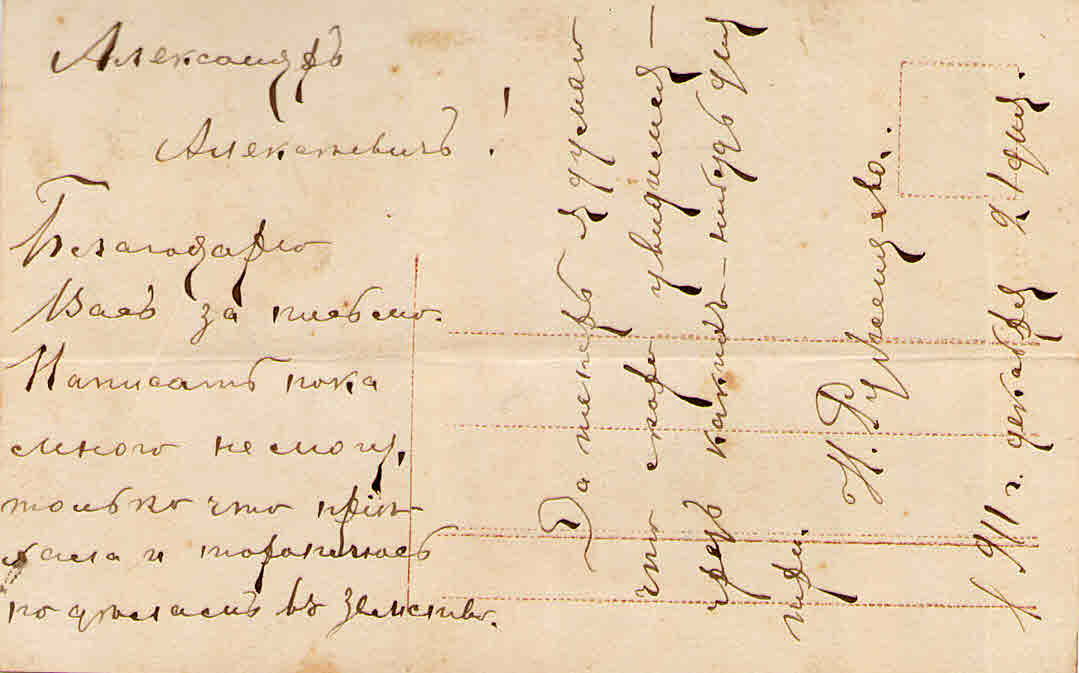 Александръ
Алексѣевичъ!
Благодарю
Васъ за письмо.
Написать пока
много не могу,
только что пріѣ-
хала и тороплюсь
по дѣламъ въ земство.
Да теперь я думаю
что скоро увидимся –
чрезъ какихъ-нибудь дня
три.
Н.
1911 г. декабря 21 дня.